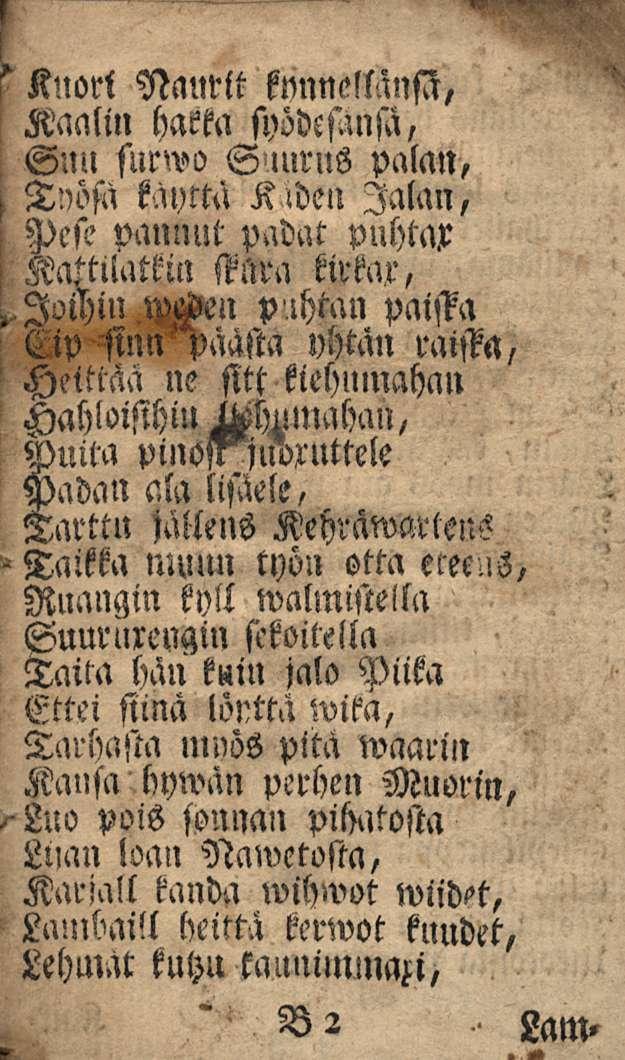 Kuori Naurit kynnellänsä,
Kaalin hakka syödesänsä,
Suu surwo Suurus palan,
Työsä käyttä Käden Jalan,
Pese pannut padat puhtax
Kattilatkin skura kirkax,
Joihin weden puhtan paiska
Eip sinn päästa yhtän raiska,
Heittää ne sitt kiehumahan
Hahloisihin
Puita pinost juoxuttele
Padan ala lisäele,
Tarttu jällens Kehräwartens
Taikka muun työn otta eteens,
Ruangin kyll walmistella
Suuruxengin sekoitella
Taita hän kuin jalo Piika
Ettei siinä löyttä wika,
Tarhasta myös pitä waarin
Kansa hywän perhen Muorin,
Luo pois sonnan pihatosta
Lijan loan Nawetosta,
Karjall kanda wihwot wiidet,
Lambaill heittä kerwot kuudet,
Lehmät kutzu kaunimmaxi,
B 2
Lam-